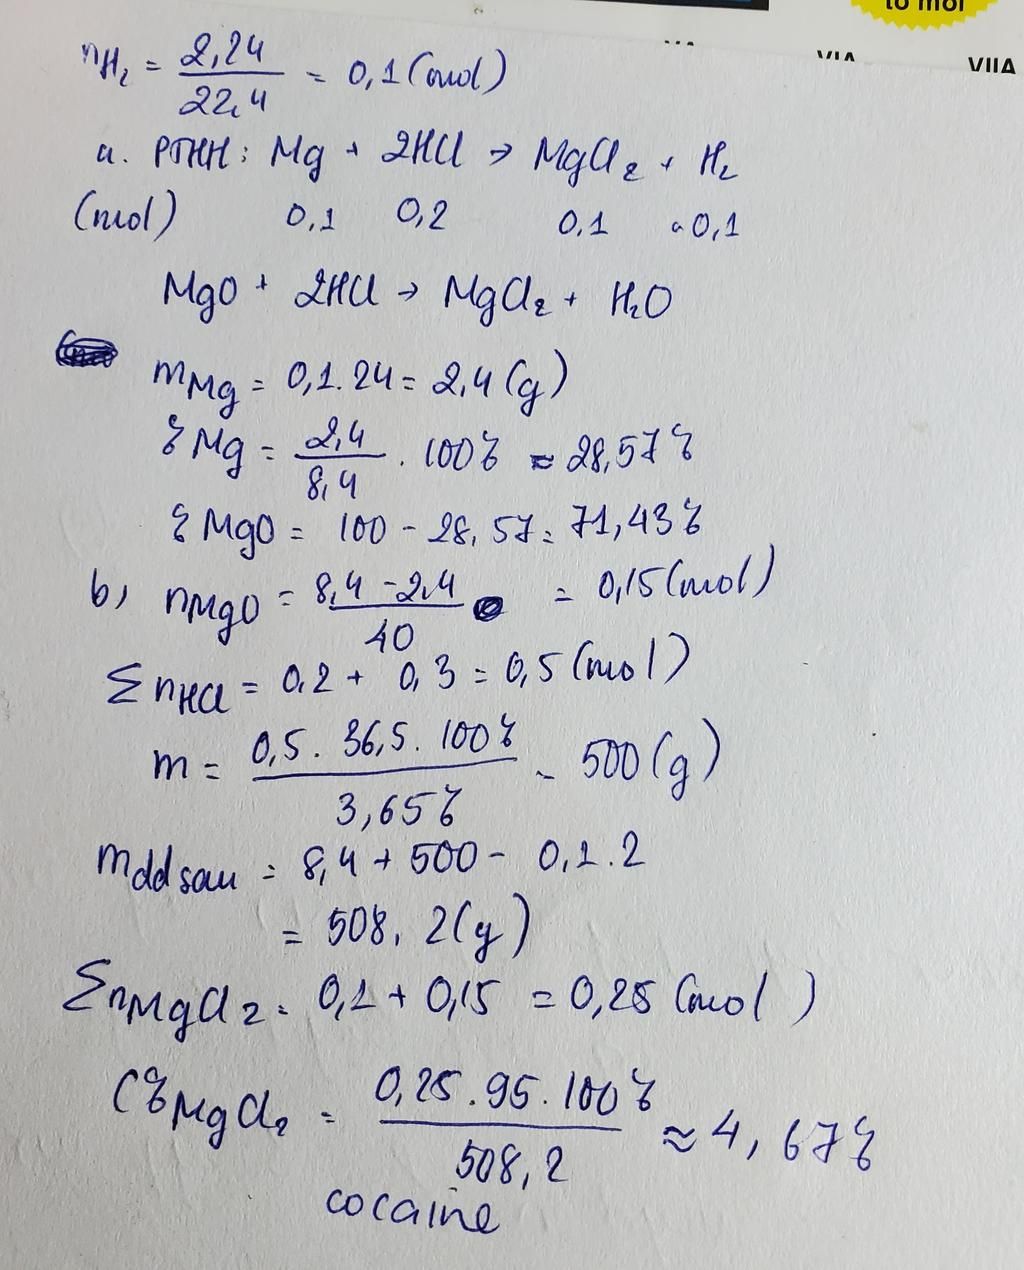 to mol
VIA
VIIA
nH₂ = 2,24 / 22,4 = 0,1 (mol)
a. PTHH: Mg + 2HCl → MgCl₂ + H₂
(mol) 0,1 0,2 0,1 0,1
MgO + 2HCl → MgCl₂ + H₂O
mMg = 0,1.24 = 2,4 (g)
% Mg = 2,4 / 8,4 . 100% = 28,57%
% MgO = 100 - 28,57 = 71,43%
b) nMgO = 8,4 - 2,4 / 40 = 0,15 (mol)
Σ nHCl = 0,2 + 0,3 = 0,5 (mol)
m = 0,5. 36,5. 100% / 3,65% = 500 (g)
mdd sau = 8,4 + 500 - 0,1.2
= 508,2 (g)
Σ nMgCl₂ = 0,1 + 0,15 = 0,25 (mol)
C% MgCl₂ = 0,25.95.100% / 508,2 ≈ 4,67%
cocaine